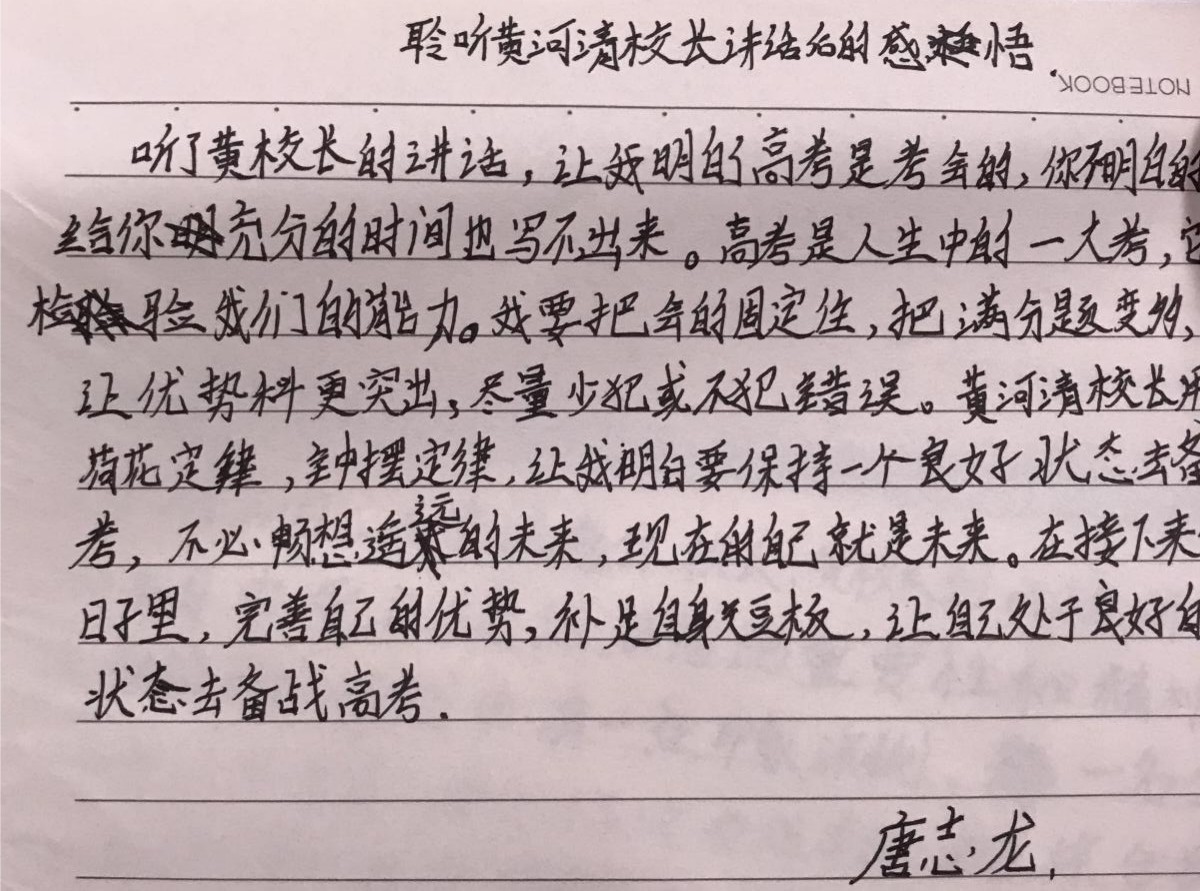 聆听黄河清校长讲话后的感悟.
NOTEBOOK
听了黄校长的讲话，让我明白了高考是考会的，你不明白的
给你充分的时间也写不出来。高考是人生中的一大考，它
检验我们的能力。我要把会的固定住，把满分题变多，
让优势科更突出，尽量少犯或不犯错误。黄河清校长用
荷花定律，钟摆定律，让我明白要保持一个良好状态去备
考，不必畅想遥远的未来，现在的自己就是未来。在接下来
日子里，完善自己的优势，补足自身短板，让自己处于良好的
状态去备战高考.
唐志龙.